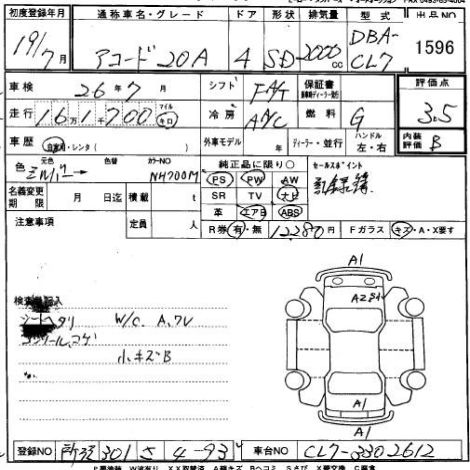 初度登録年月 通称車名・グレード ドア 形状 排気量 型式 出品NO
19/7月 アコード 20A 4 SD 2000cc DBA-CL7 1596
車検 26年7月 シフト F A/T 保証書 評価点
走行 16万1千700 マイル キロ 冷房 A/C 燃料 G 3.5
車歴 自家用・レンタ( ) 外車モデル 年 ディーラー・並行 ハンドル 左・右 内装評価 B
色 元色 シルバー 色替 カラーNO NH700M 純正品に限り○ セールスポイント
PS PW AW 記録簿
名義変更期限 月 日迄 積載 t SR TV ナビ
革 エアB ABS
注意事項 定員 人 R券 有・無 12280円 Fガラス キズ・A・X要す
A1
検査員記入 A2
シートヘタリ W/C A.フレ
コンソール.コゲ
小キズB
A1
A1
登録NO 301 さ 4-93 車台NO CL7-3302612